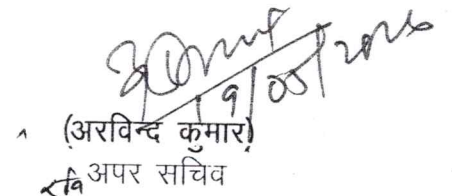 19/05/2026
(अरविन्द कुमार)
अपर सचिव